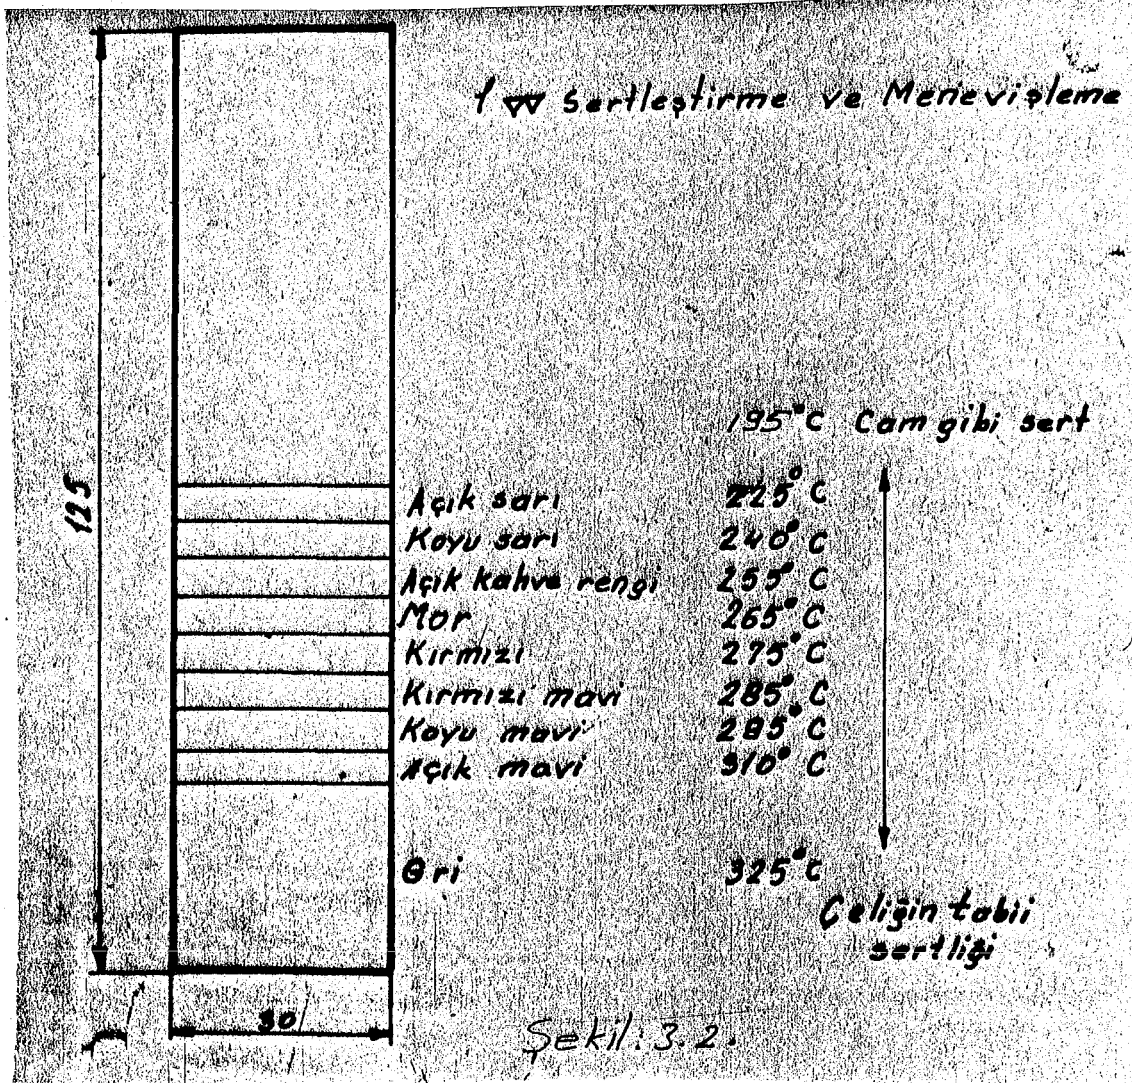 1 ▽▽ Sertleştirme ve Menevişleme
195°C Cam gibi sert
Açık sarı 225° C
Koyu sarı 240° C
Açık kahve rengi 255° C
Mor 265° C
Kırmızı 275° C
Kırmızı mavi 285° C
Koyu mavi 295° C
Açık mavi 310° C
Gri 325°C
Çeliğin tabii
sertliği
125
30
Şekil: 3.2.